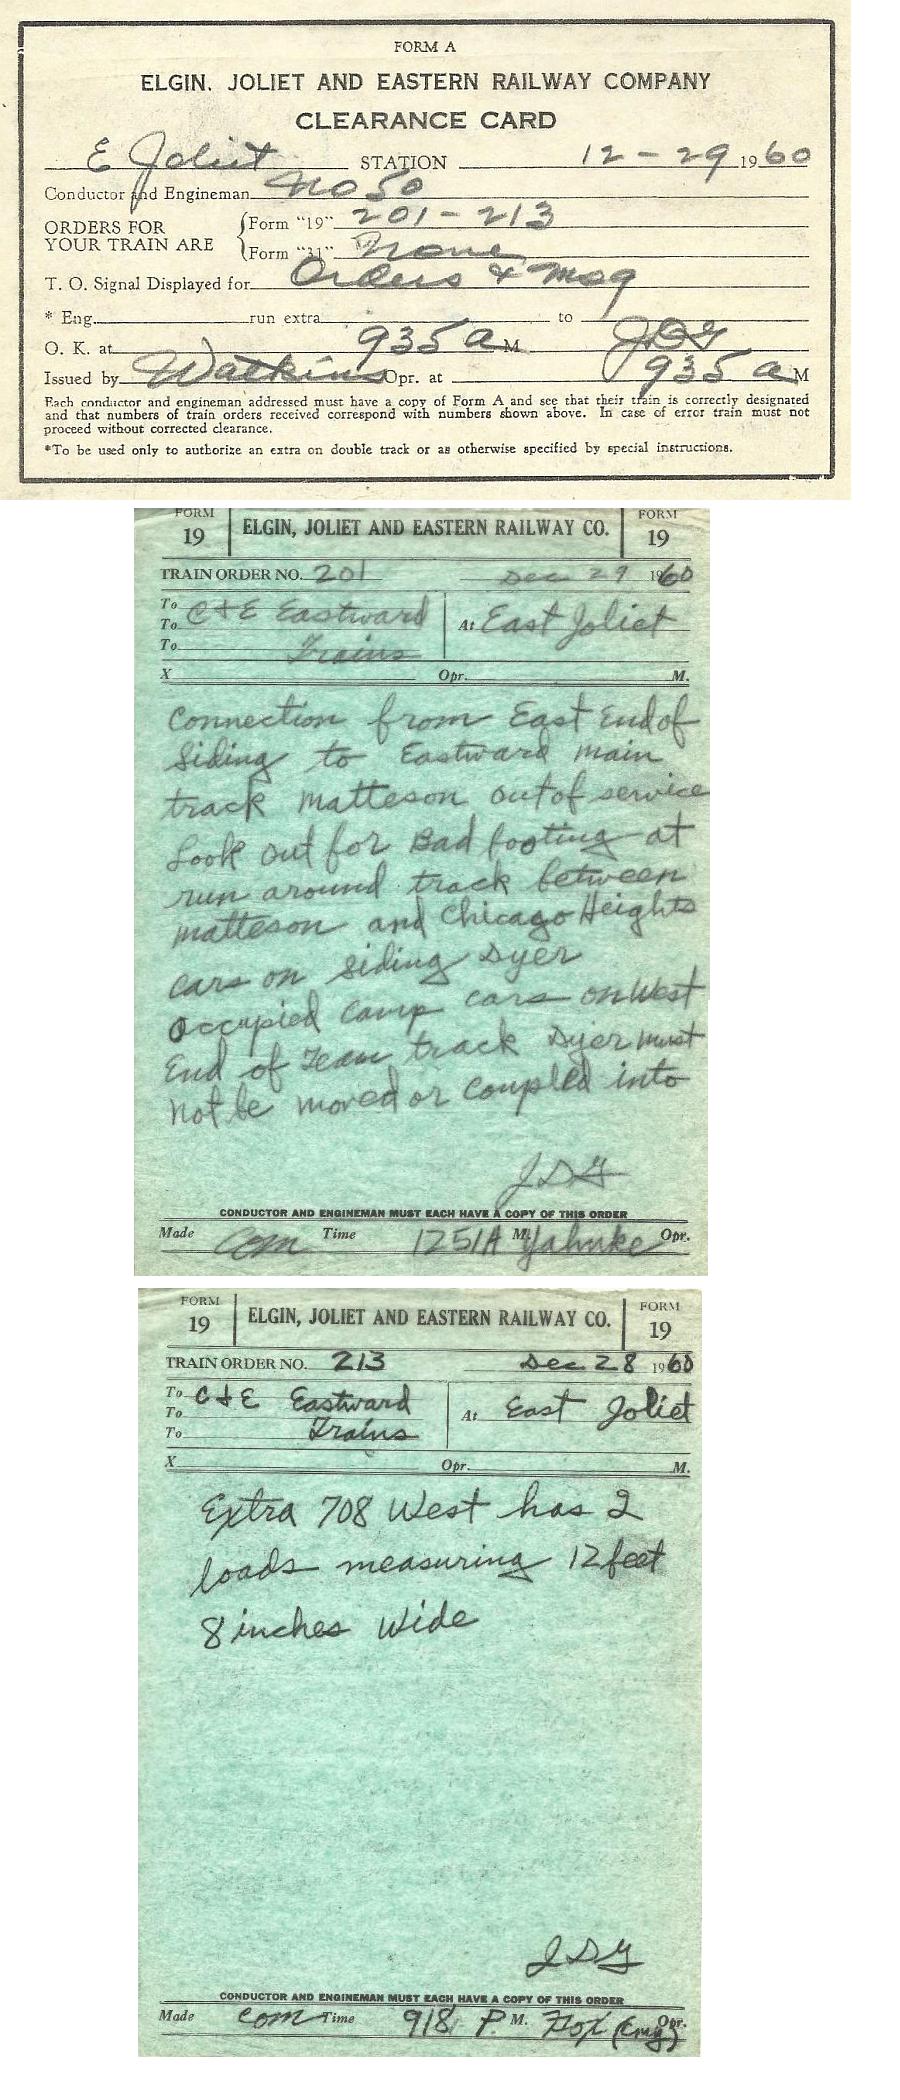 FORM A
ELGIN, JOLIET AND EASTERN RAILWAY COMPANY
CLEARANCE CARD
E Joliet STATION 12-29 1960
Conductor and Engineman No 50
ORDERS FOR YOUR TRAIN ARE
Form "19" 201-213
Form "31" None
T. O. Signal Displayed for Orders & Msg
* Eng. run extra to
O. K. at 935 a M JDG
Issued by Watkins Opr. at 935 a M
Each conductor and engineman addressed must have a copy of Form A and see that their train is correctly designated
and that numbers of train orders received correspond with numbers shown above. In case of error train must not
proceed without corrected clearance.
*To be used only to authorize an extra on double track or as otherwise specified by special instructions.
FORM 19 ELGIN, JOLIET AND EASTERN RAILWAY CO. FORM 19
TRAIN ORDER NO. 201 Dec 29 1960
To C & E Eastward At East Joliet
To
To Trains
X Opr. M.
Connection from East End of
Siding to Eastward main
track Matteson out of service
Look out for Bad footing at
run around track between
Matteson and Chicago Heights
Cars on Siding Dyer
Occupied Camp cars on West
End of Team track Dyer must
Not be moved or Coupled into
JDG
CONDUCTOR AND ENGINEMAN MUST EACH HAVE A COPY OF THIS ORDER
Made Com Time 1251A M. Yahnke Opr.
FORM 19 ELGIN, JOLIET AND EASTERN RAILWAY CO. FORM 19
TRAIN ORDER NO. 213 Dec 28 1960
To C & E Eastward At East Joliet
To
To Trains
X Opr. M.
Extra 708 West has 2
loads measuring 12 feet
8 inches Wide
JDG
CONDUCTOR AND ENGINEMAN MUST EACH HAVE A COPY OF THIS ORDER
Made Com Time 918 P M. Fox Opr.